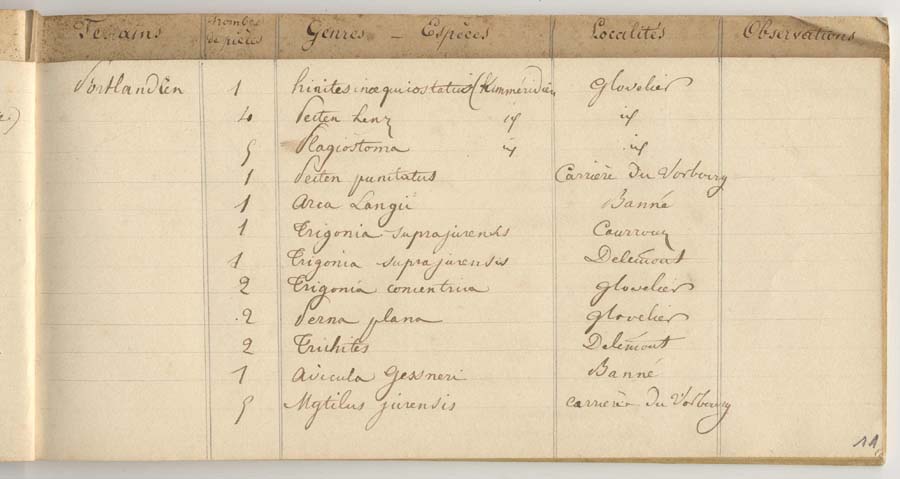 Terrains Nombre de pièces Genres - Espèces Localités Observations
Portlandien 1 hinites inoequiostatus (Kimméridien Glovelier
4 Pecten Lens id id
5 Plagiostoma id id
1 Pecten punctatus Carrière du Vorbourg
1 Arca Langii Banné
1 Trigonia suprajurensis Courroux
1 Trigonia suprajurensis Delémont
2 Trigonia concentrica Glovelier
2 Perna plana Glovelier
2 Trichites Delémont
1 Avicula Gessneri Banné
5 Mytilus jurensis carrière du Vorbourg
11